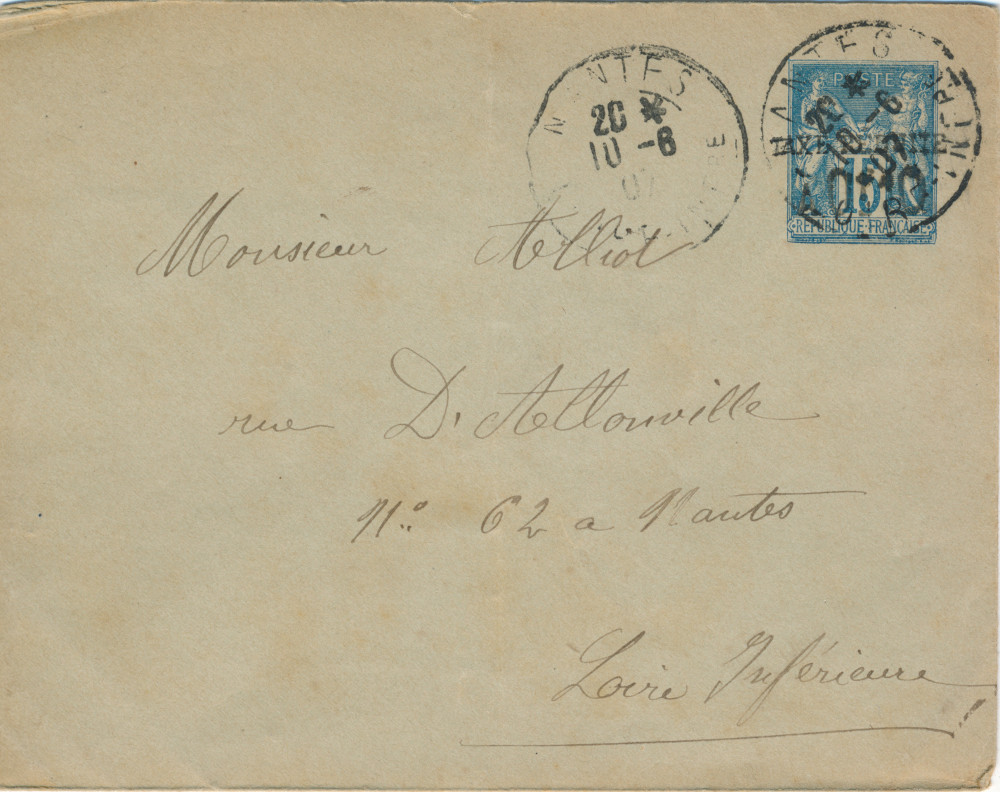 NANTES
20 *
10 -6
07
NANTES
20 *
10 -6
07
POSTE
15
REPUBLIQUE FRANÇAISE
Monsieur Alliot
rue D'Allonville
No. 62 a Nantes
Loire Inférieure